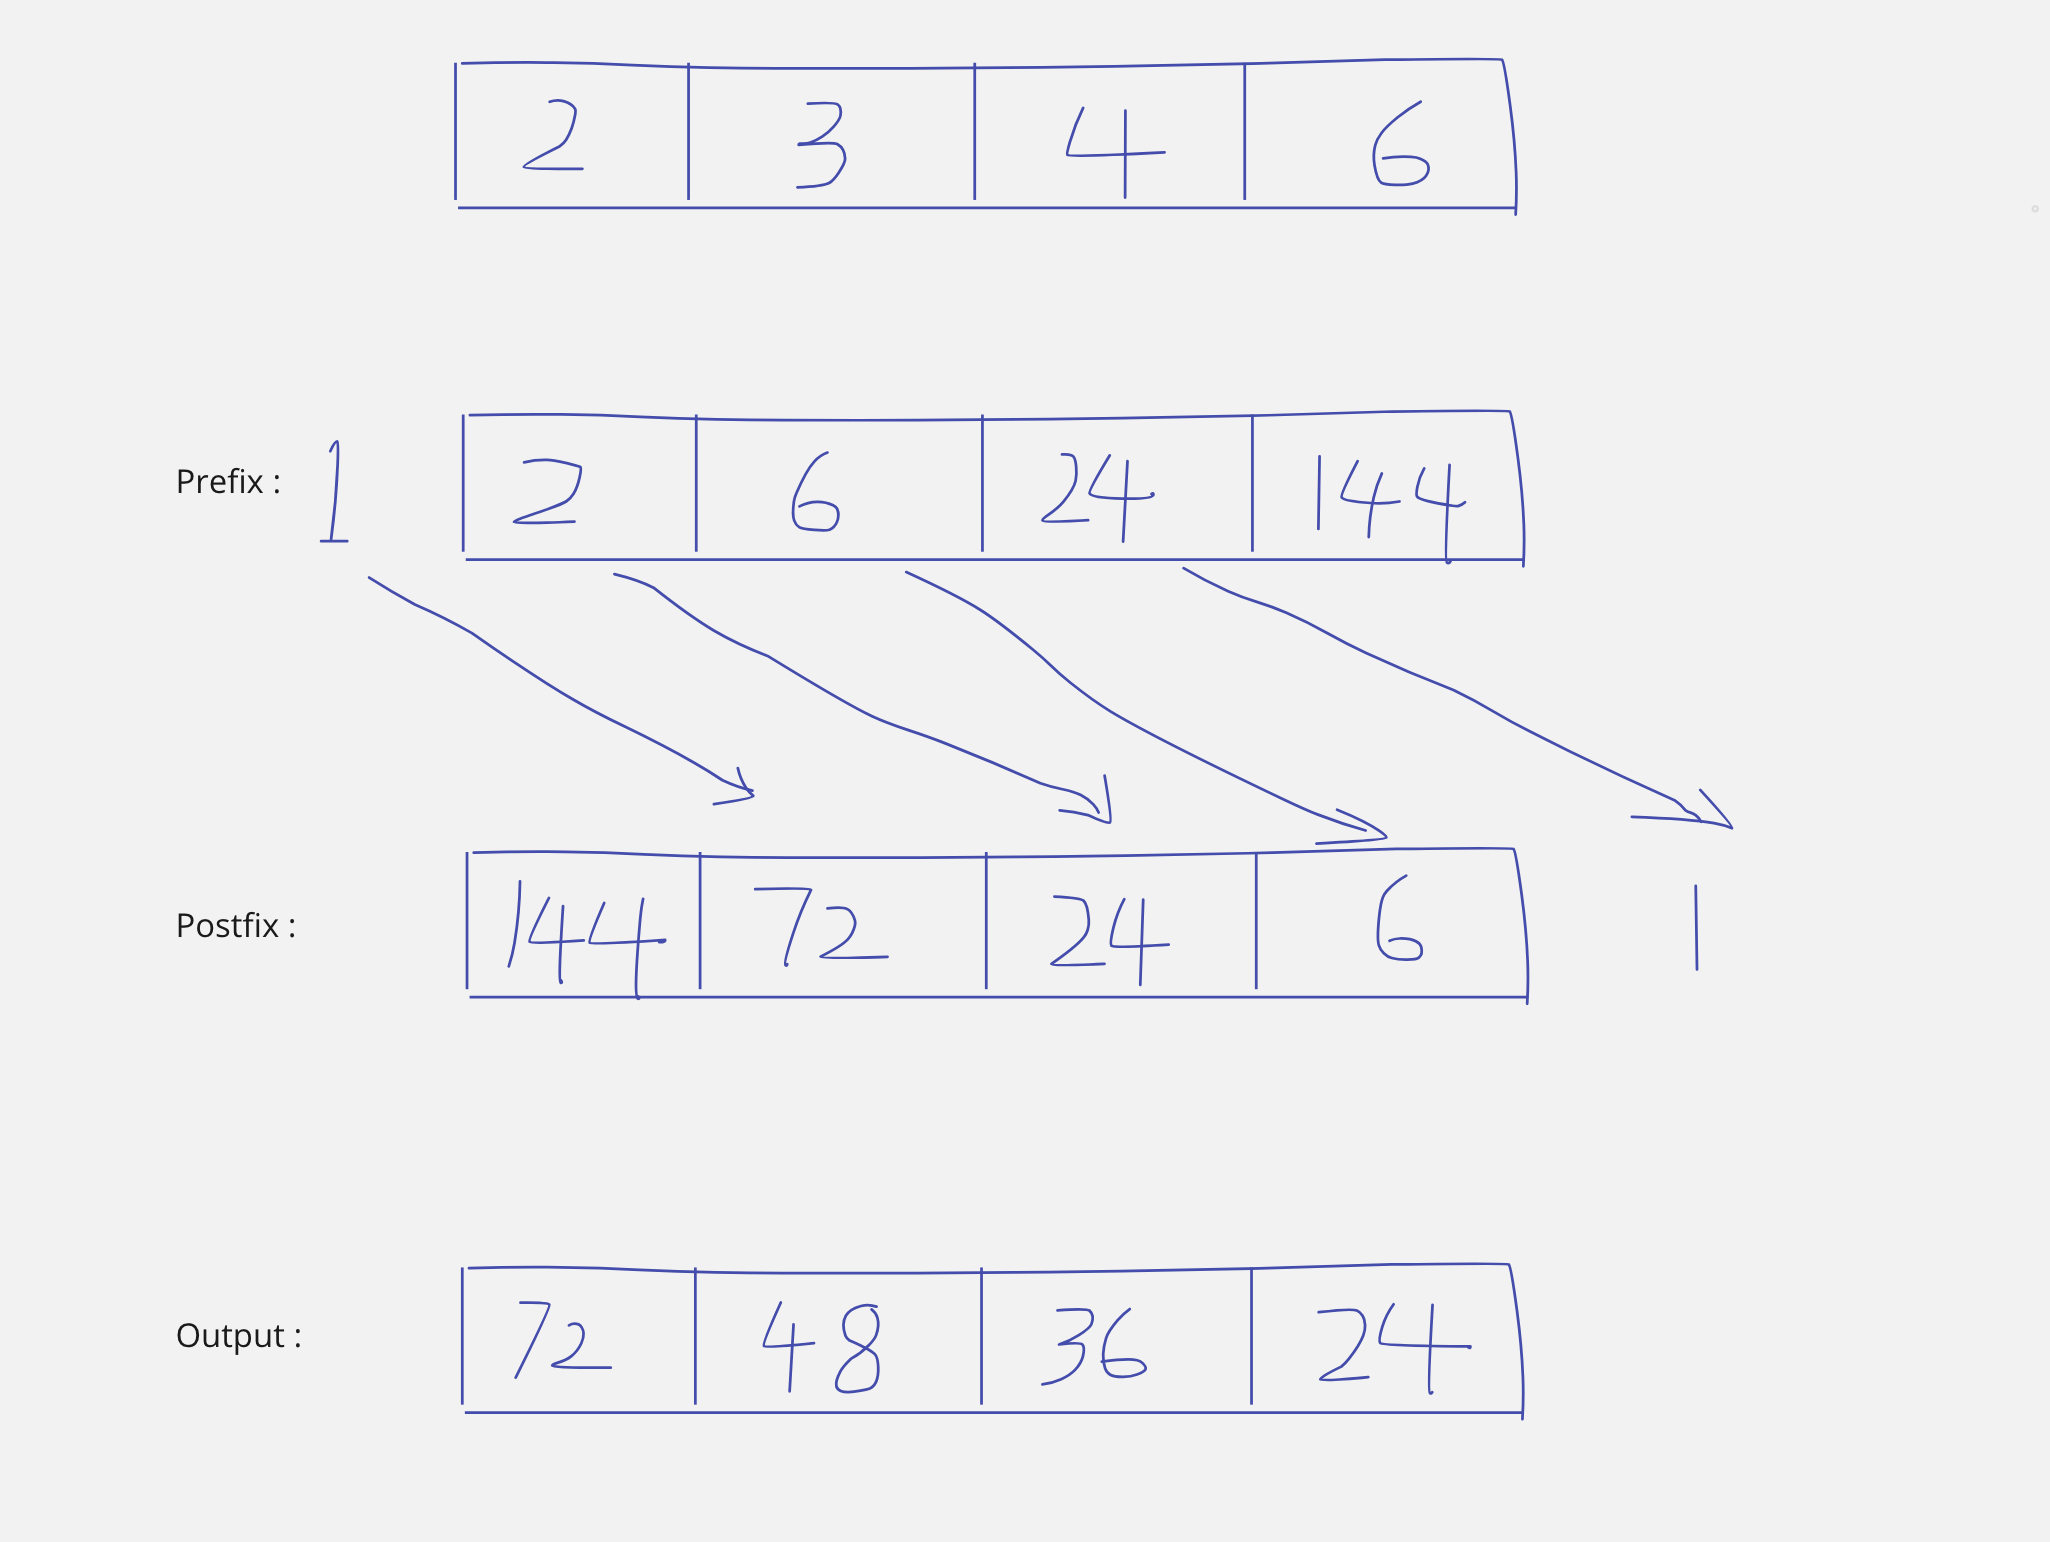 2 3 4 6
Prefix : 1 2 6 24 144
Postfix : 144 72 24 6 1
Output : 72 48 36 24